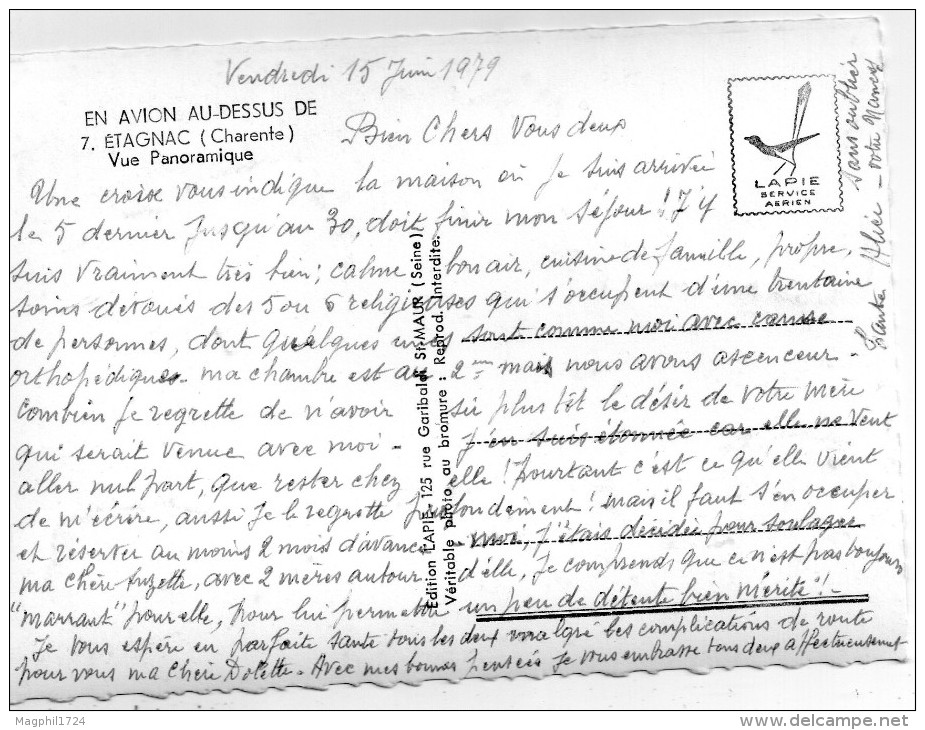 Vendredi 15 Juin 1979
EN AVION AU-DESSUS DE
7. ÉTAGNAC (Charente)
Vue Panoramique
Bien Chers Vous deux
Une croix vous indique la maison où je suis arrivée
le 5 dernier jusqu'au 30, doit finir mon séjour ! J'y
suis vraiment très bien ; calme bon air, cuisine de famille, propre,
soins dévoués des 5 ou 6 religieuses qui s'occupent d'une trentaine
de personnes, dont quelques unes sont comme moi avec canne
orthopédiques - ma chambre est au 2me mais nous avons ascenceur -
Combien je regrette de n'avoir sû plus tôt le désir de votre mère
qui serait venue avec moi - J'en suis étonnée car elle ne veut
aller nul part, que rester chez elle ! Pourtant c'est ce qu'elle vient
de m'écrire, aussi je le regrette profondement ! mais il faut s'en occuper
et réserver au moins 2 mois d'avance, moi, j'étais décidée pour soulager
ma chère Suzette, avec 2 mères autour d'elle, je comprends que ce n'est pas toujours
"marrant" pour elle, pour lui permettre un peu de détente bien méritée ! -
Je vous espère en parfaite santé tous les deux malgré les complications de route
pour vous ma chère Dolette - Avec mes bonnes pensées je vous embrasse tous deux affectueusement
sans oublier
votre Nancy
Alice -
LAPIE
SERVICE
AERIEN
Edition LAPIE - 125 rue Garibaldi ST-MAUR (Seine)
Véritable photo au bromure : Reprod. Interdite.
Magphil1724
www.delcampe.net